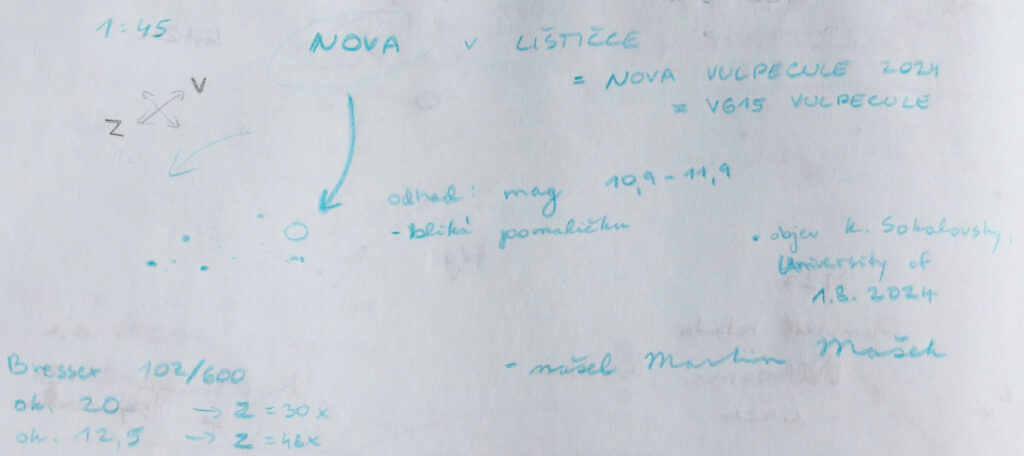 1:45
NOVA v LIŠTIČCE
= NOVA VULPECULE 2024
= V615 VULPECULE
V
Z
odhad: mag 10,9-11,9
- bliká pomaličku
• objev K. Sokolovsky,
University of
1.8. 2024
- našel Martin Mašek
Bresser 102/600
ok. 20 → Z = 30x
ok. 12,5 → Z = 48x